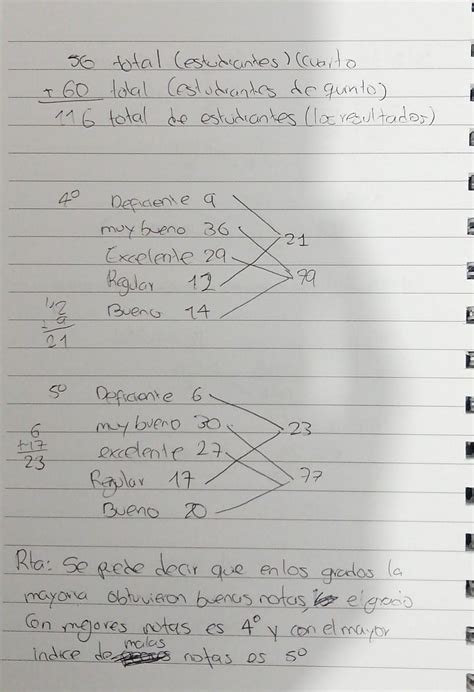 56 total (estudiantes) (cuarto
+ 60 total (estudiantes de quinto)
116 total de estudiantes (los resultados)
4º Deficiente 9
muy bueno 36
21
Excelente 29
79
Regular 12
Bueno 14
12
+ 9
21
5º Deficiente 6
muy bueno 30
23
excelente 27
77
Regular 17
Bueno 20
6
+17
23
Rta: Se puede decir que en los grados la
mayoria obtuvieron buenas notas, el grado
Con mejores notas es 4º y con el mayor
indice de malas notas es 5º